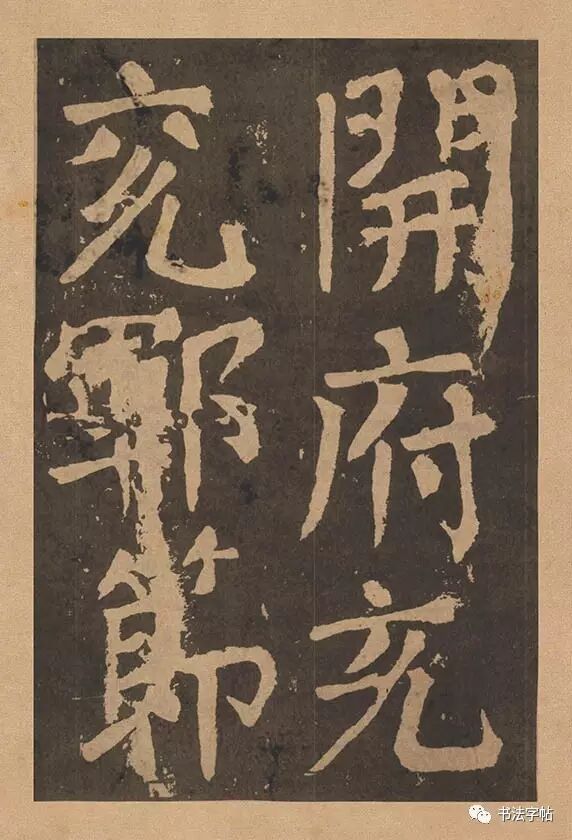 開府充
兖鄆節
书法字帖